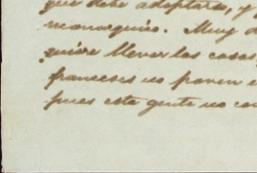 que debe adoptarse, y
monarquico. Muy d
quiere llevar las cosas
franceses no ponen e
pues esta gente no con